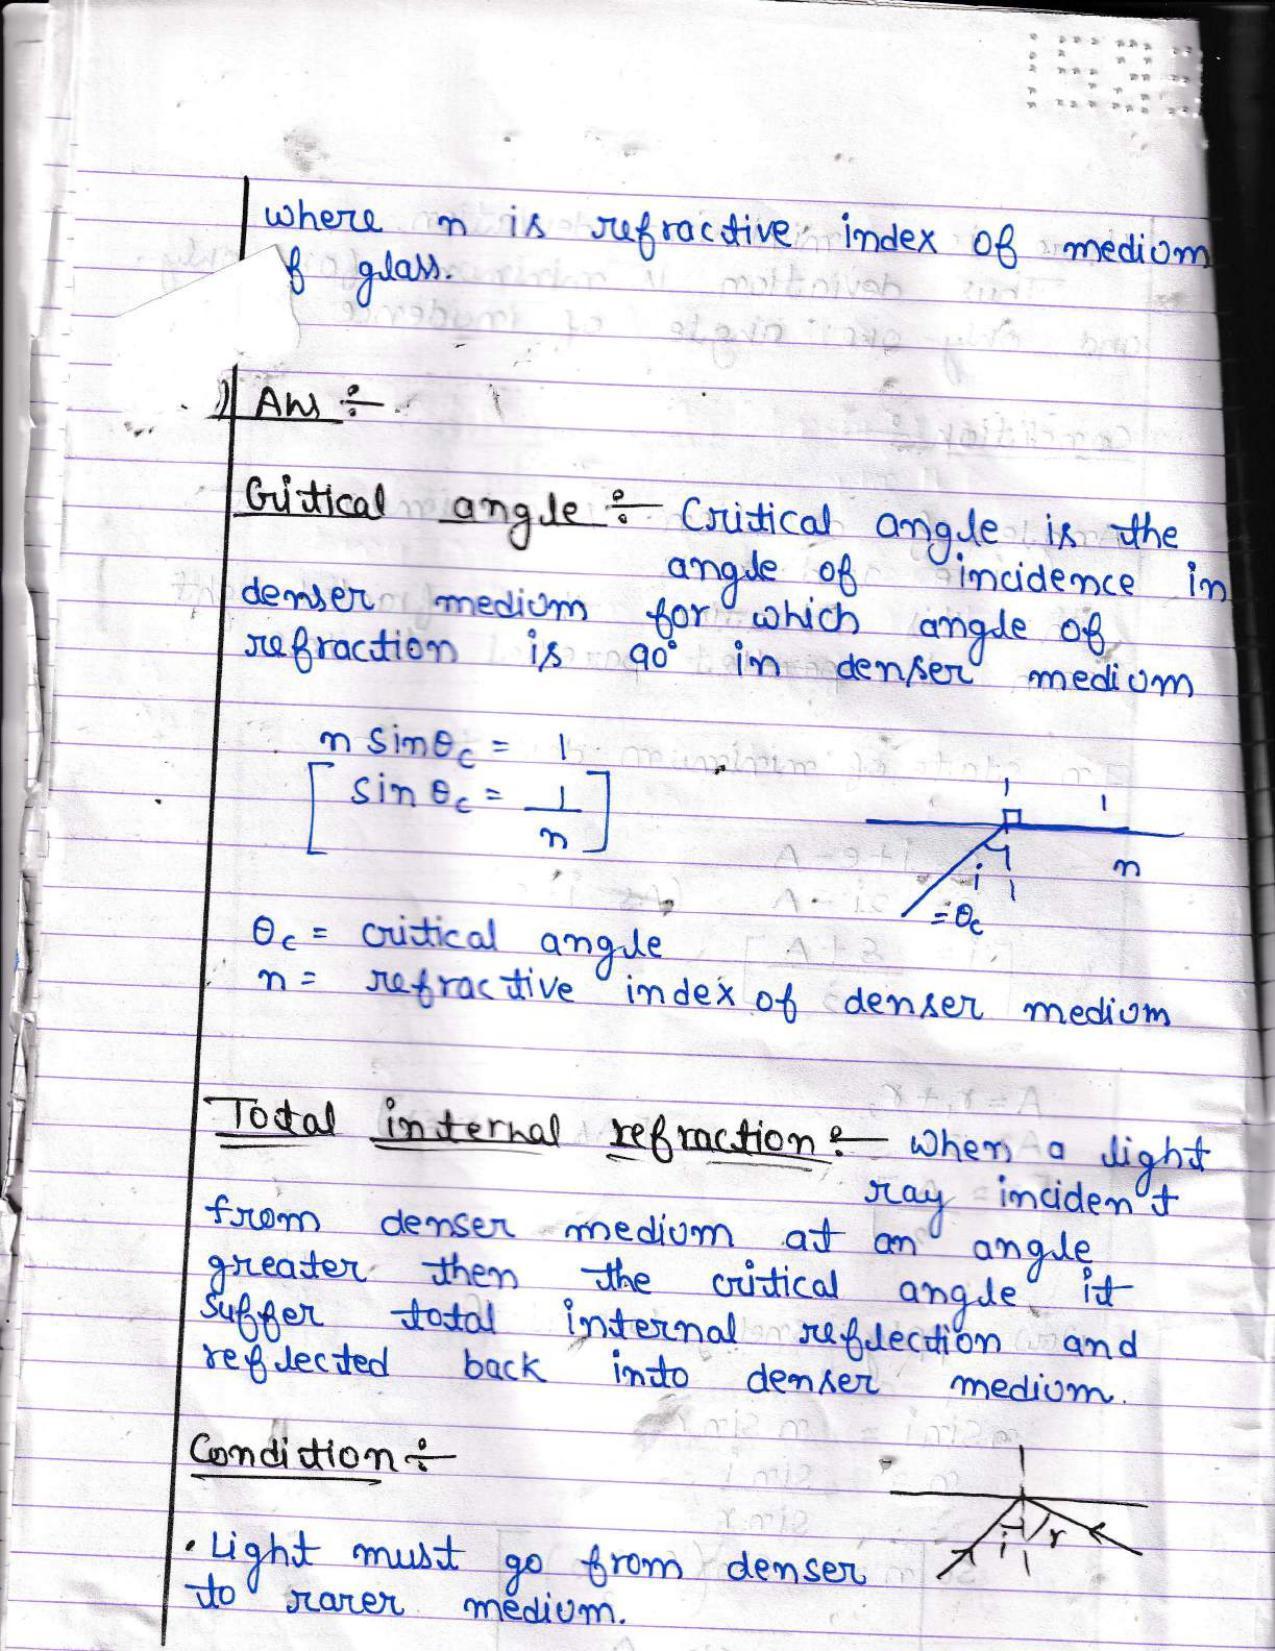 where n is refractive index of medium
of glass.
Ans ÷
Critical angle ÷ Critical angle is the
angle of incidence in
denser medium for which angle of
refraction is 90° in denser medium
n sinθc = 1
[ sin θc = 1/n ]
1
n
i
= θc
θc = critical angle
n = refractive index of denser medium
Total internal refraction ÷ when a light
ray incident
from denser medium at an angle
greater then the critical angle it
suffer total internal reflection and
reflected back into denser medium.
Condition ÷
i r
• Light must go from denser
to rarer medium.